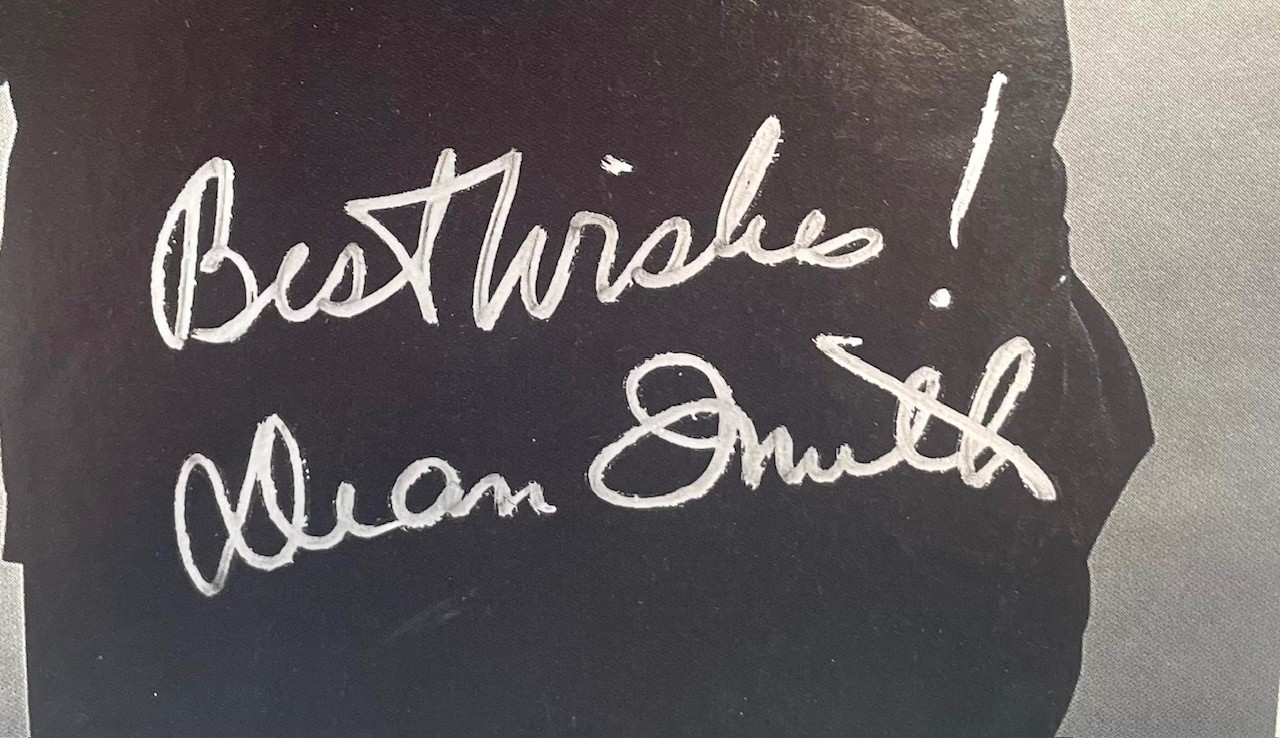 Best Wishes!
Dean Smith